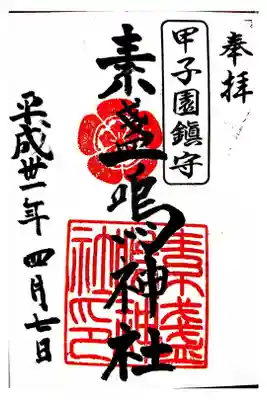 奉拝
甲子園鎮守
素盞嗚神社
平成卅一年 四月七日
素盞
嗚神
社印